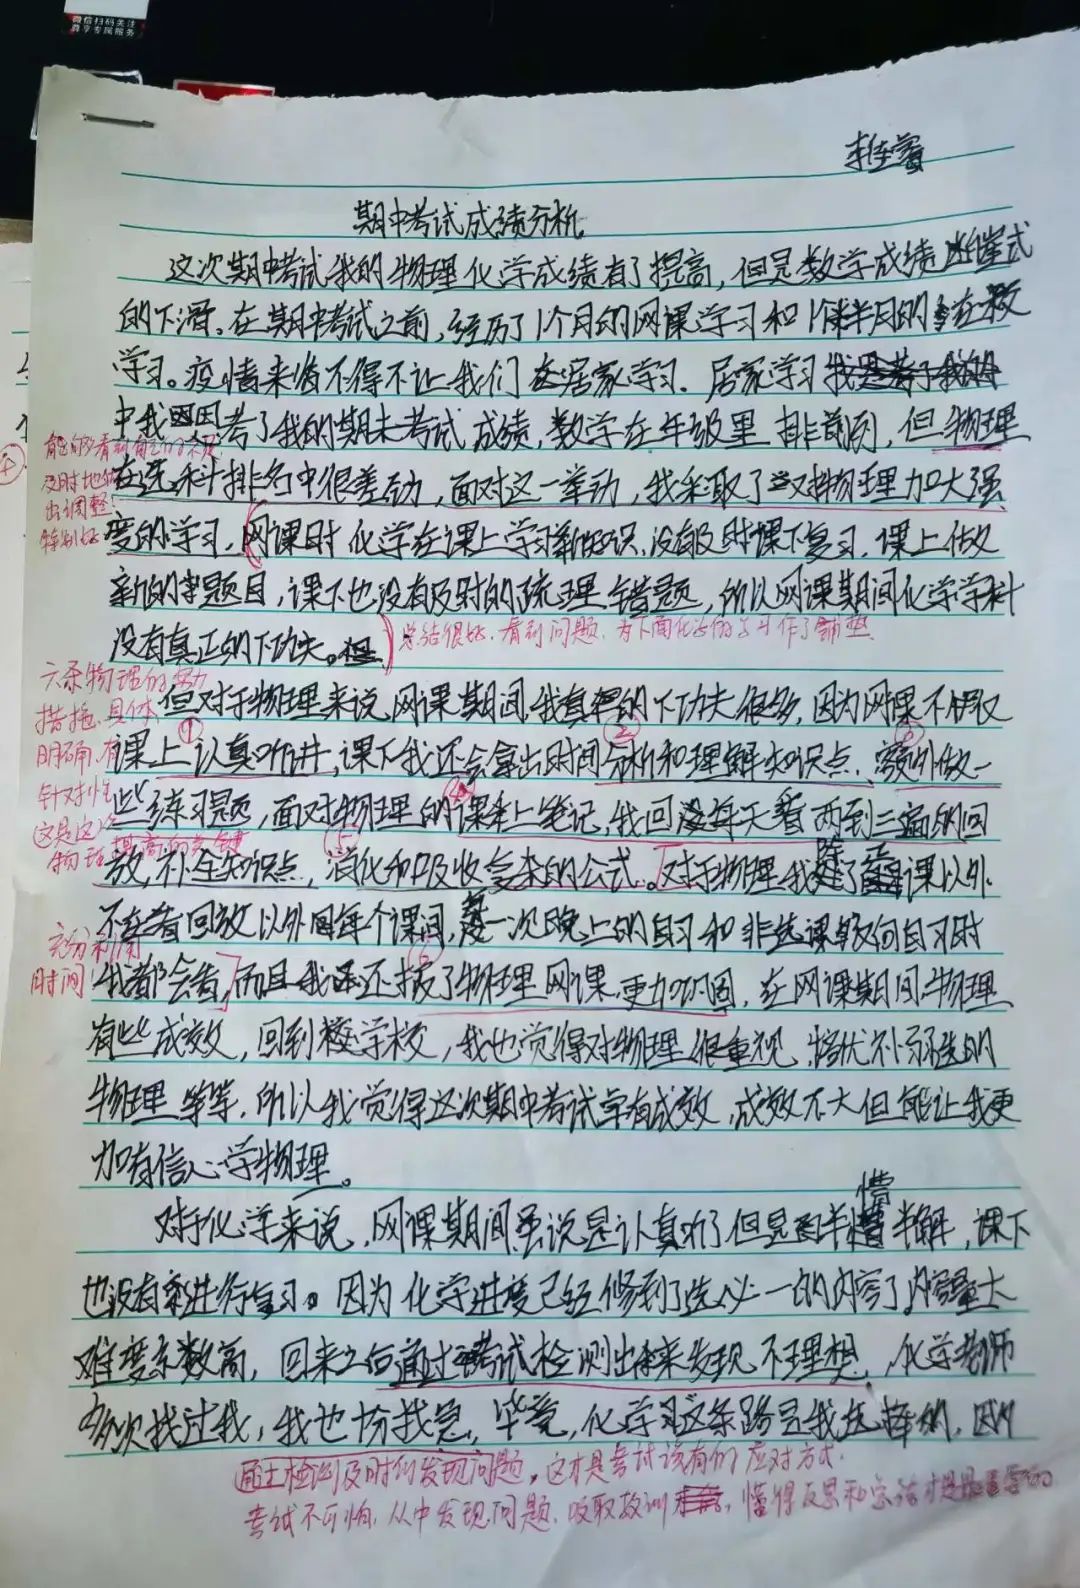 微信扫码关注
尊享专属服务
期中考试成绩分析
这次期中考试我的物理化学成绩有了提高,但是数学成绩断崖式
的下滑。在期中考试之前,经历了1个月的网课学习和1个半月的在校
学习。疫情来临不得不让我们在居家学习.居家学习
中我因考了我的期末考试成绩,数学在年级里排前列,但物理
在选科排名中很差劲,面对这一举动,我采取了对物理加大强
度的学习,网课时化学在课上学习新知识,没有及时课下复习,课上做
新的题目,课下也没有及时的疏理错题,所以网课期间化学学科
没有真正的下功夫。
总结很好,看到问题,为下面化学的学习作了铺垫
能够看到自己的不足
及时地做
出调整!
特别好
但对于物理来说,网课期间,我真的下功夫很多,因为网课不仅仅
课上认真听讲,课下我还会拿出时间分析和理解知识点、额外做一
些练习题,面对物理的课堂上笔记,我回没每天看两到三遍的回
放,补全知识点,消化和吸收复杂的公式。对于物理我除了课以外
不在看回放以外每个课间,第一次晚上的自习和非选课空间自习时
我都会看,而且我还报了物理网课,更加巩固,在网课期间物理
有些成效,回到学校,我也觉得对物理很重视,培优补弱选的
物理等等,所以我觉得这次期中考试卓有成效,成效不大但能让我更
加有信心学物理。
六条物理的努力
措施,具体
明确,有
针对性
这是这次
物理提高的关键
① ② ③ ④ ⑤ ⑥
充分利用
时间
对于化学来说,网课期间虽说是认真听了但是半懂半解,课下
也没有进行复习。因为化学进度已经修到了选必一的内容了内容量大
难度系数高,回来之后通过考试检测出来发现不理想,化学老师
多次找过我,我也份找急,毕竟,化学学习这条路是我选择的,因为
通过检测及时的发现问题,这才是考试该有的应对方式.
考试不可怕,从中发现问题,吸取教训,懂得反思和总结才是最